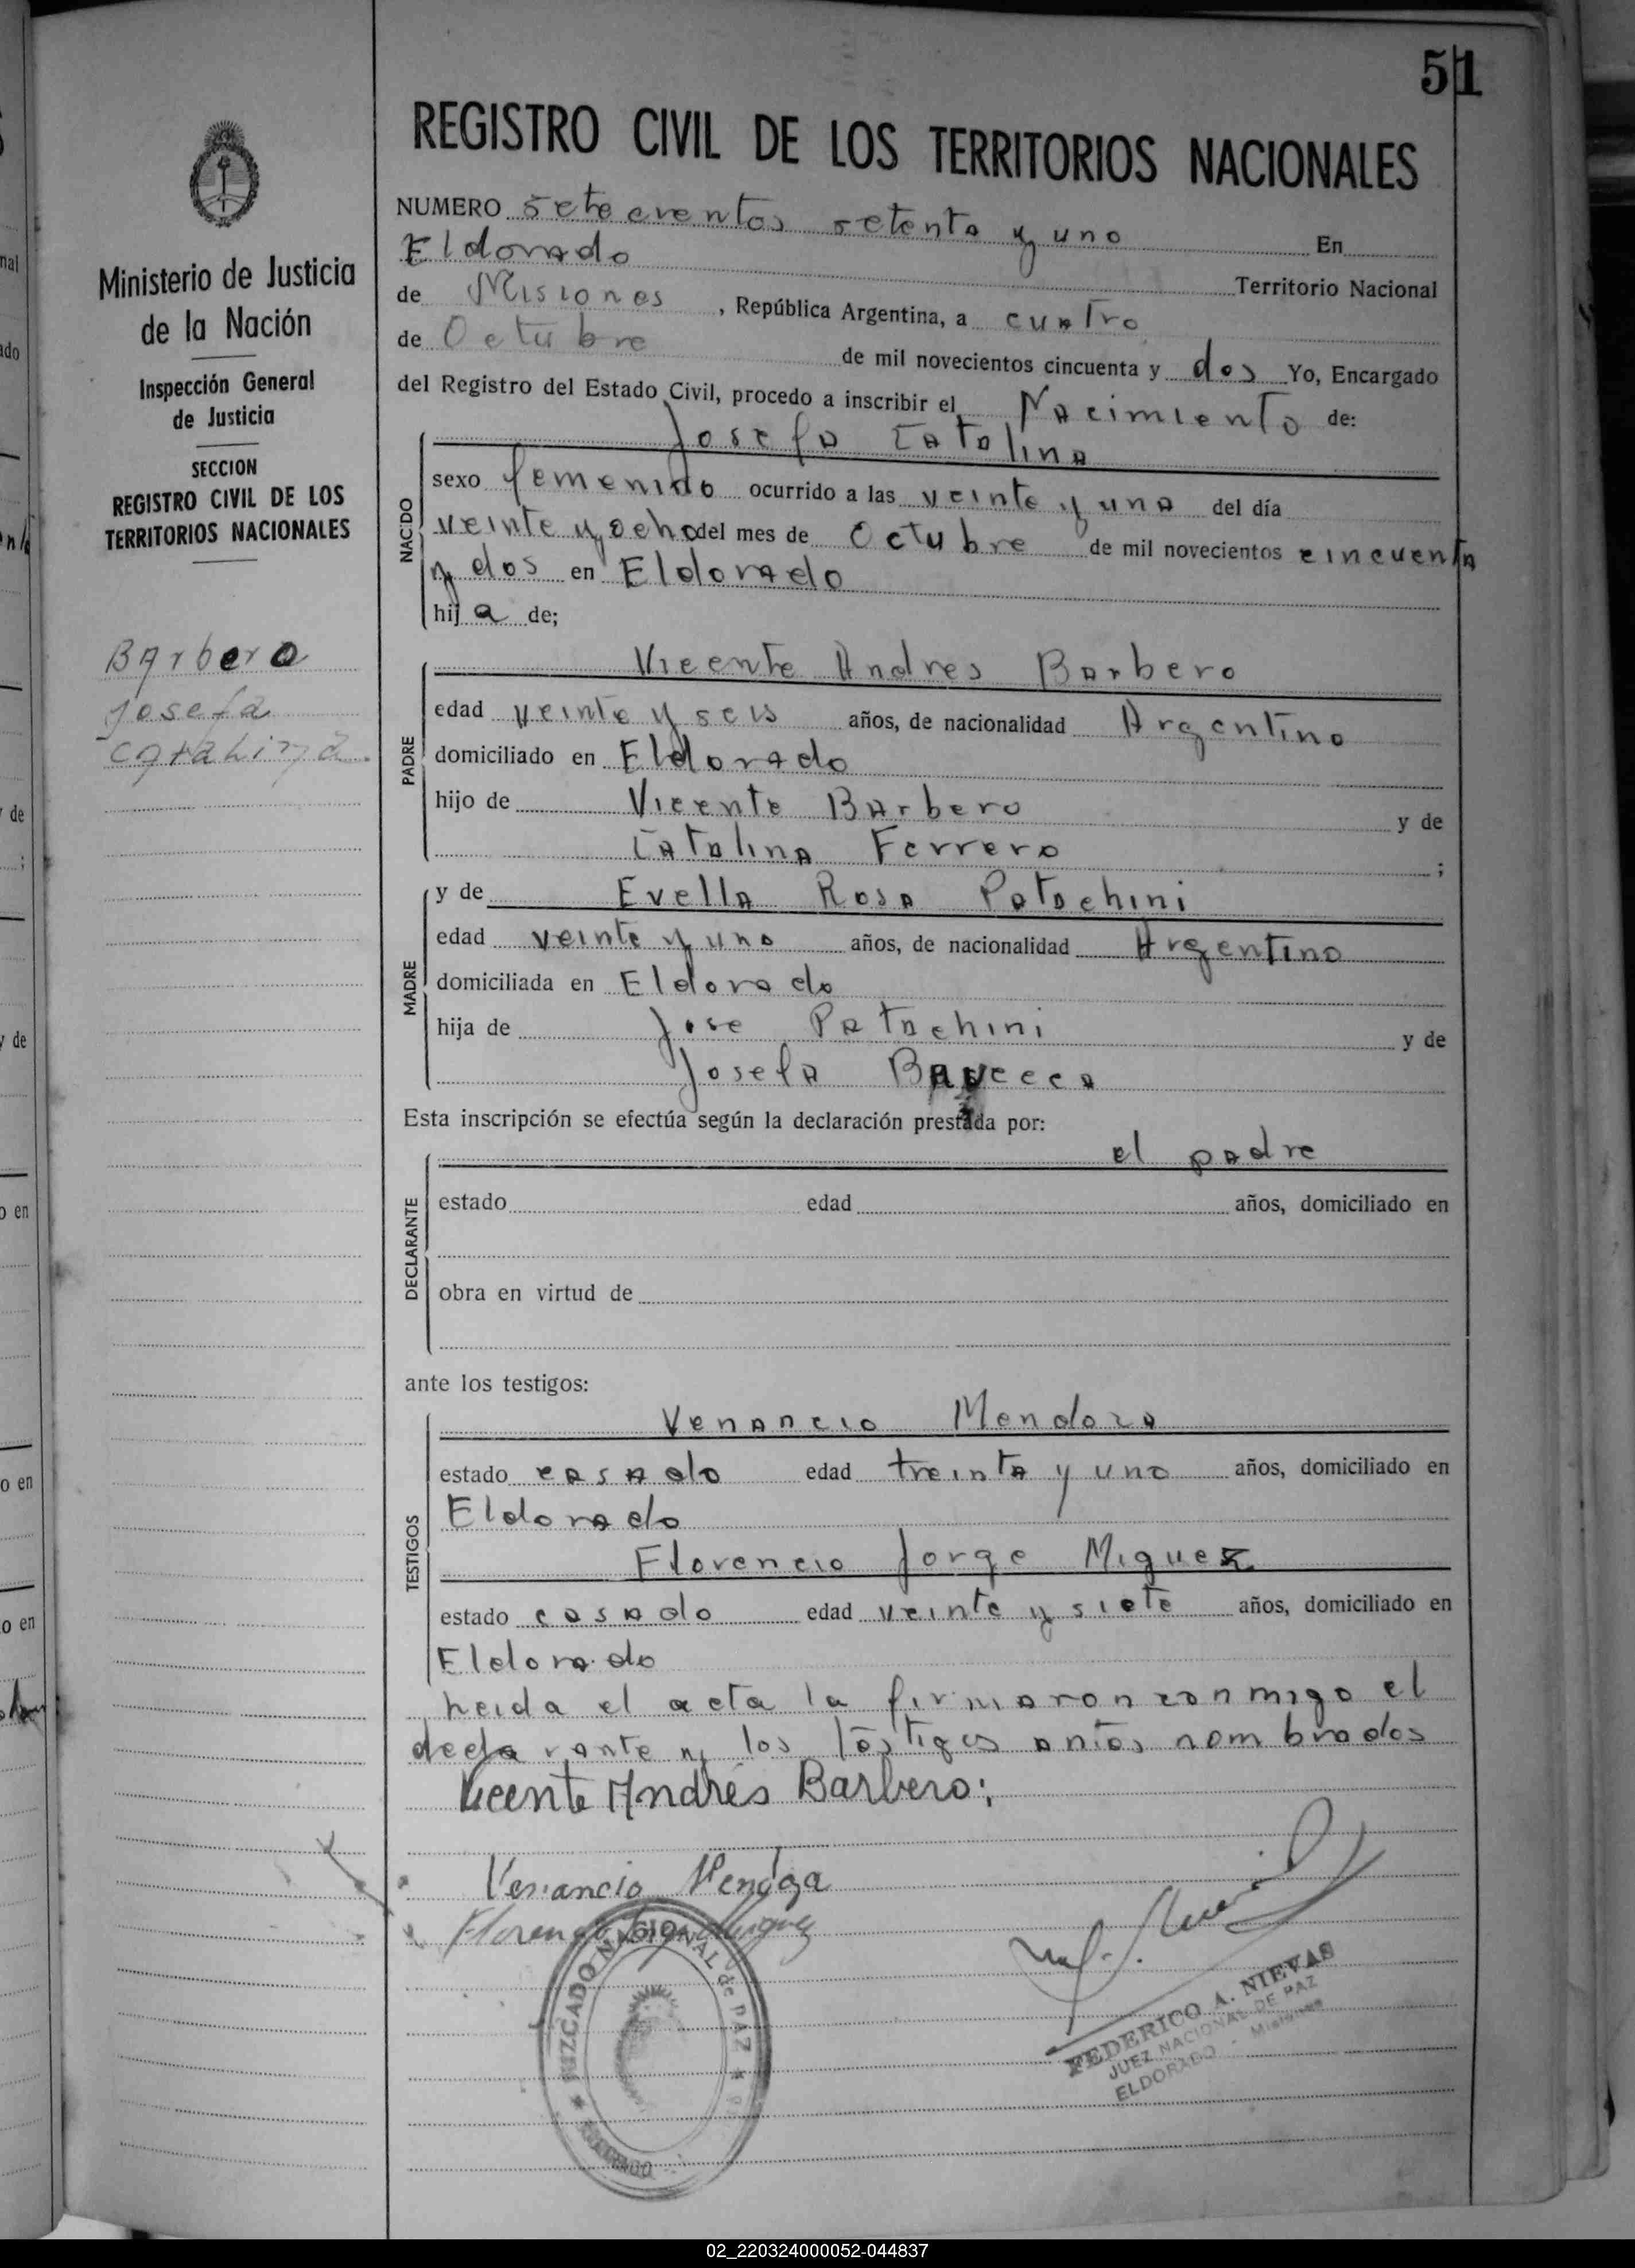 51
REGISTRO CIVIL DE LOS TERRITORIOS NACIONALES
Ministerio de Justicia
de la Nación
Inspección General
de Justicia
SECCION
REGISTRO CIVIL DE LOS
TERRITORIOS NACIONALES
Barbero
Josefa
Catalina
NUMERO setecientos setenta y uno En
Eldorado Territorio Nacional
de Misiones, República Argentina, a cuatro
de Octubre de mil novecientos cincuenta y dos Yo, Encargado
del Registro del Estado Civil, procedo a inscribir el Nacimiento de:
Josefa Catalina
NACIDO
sexo femenido ocurrido a las veinte y una del día
veinte y ocho del mes de Octubre de mil novecientos cincuenta
y dos en Eldorado
hija de;
PADRE
Vicente Andres Barbero
edad veinte y seis años, de nacionalidad Argentino
domiciliado en Eldorado
hijo de Vicente Barbero y de
Catalina Ferrero ;
MADRE
y de Evella Rosa Patachini
edad veinte y uno años, de nacionalidad Argentina
domiciliada en Eldorado
hija de Jose Patachini y de
Josefa
Esta inscripción se efectúa según la declaración prestada por:
el padre
DECLARANTE
estado edad años, domiciliado en
obra en virtud de
ante los testigos:
TESTIGOS
Venancio Mendoza
estado casado edad treinta y uno años, domiciliado en
Eldorado
Florencio Jorge Miguez
estado casado edad veinte y siete años, domiciliado en
Eldorado
Leida el acta la firmaron conmigo el
declarante y los testigos antes nombrados
Vicente Andrés Barbero;
Venancio
Florencio Jorge Miguez
JUZGADO NACIONAL de PAZ
ELDORADO
FEDERICO A. NIEVAS
JUEZ NACIONAL DE PAZ
ELDORADO - Misiones
02_220324000052-044837